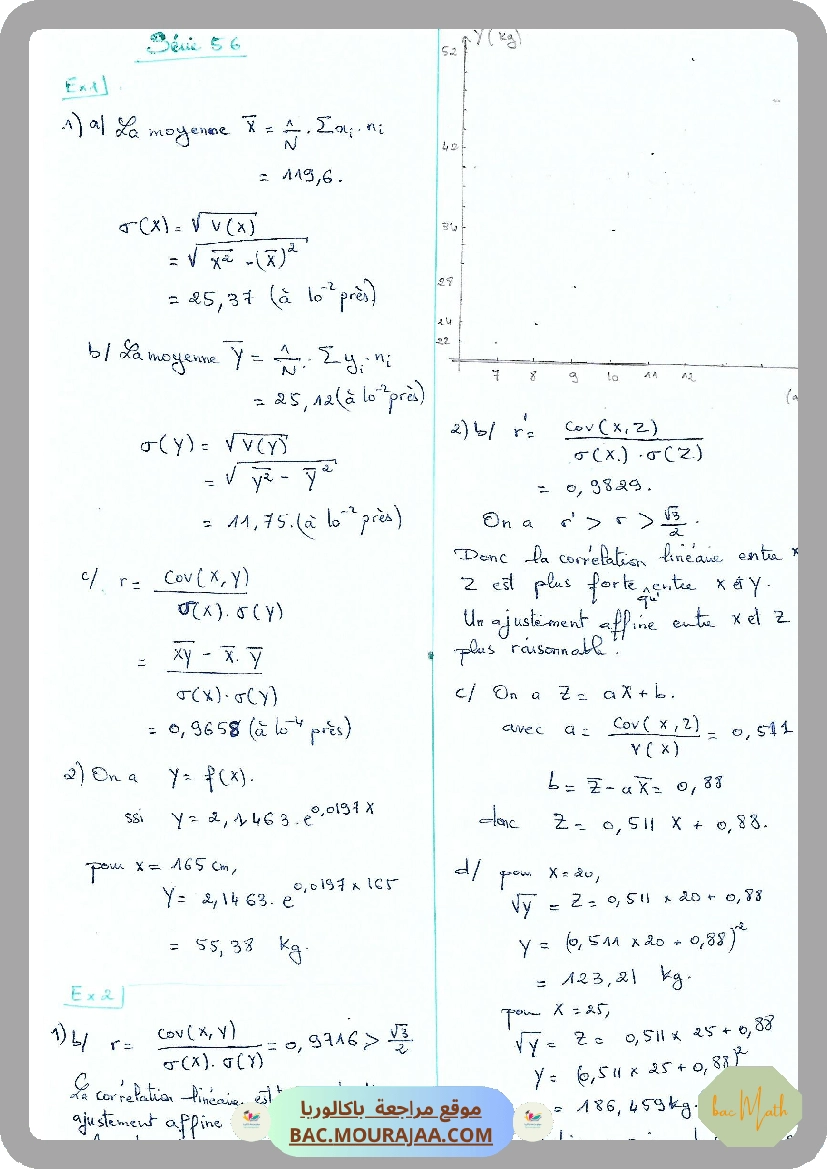 Série 56
Ex1
1) a/ La moyenne X̄ = 1/N . Σxi . ni
= 119,6.
σ(X) = √V(X)
= √x̄² - (x̄)²
= 25,37 (à 10⁻² près)
b/ La moyenne Ȳ = 1/N . Σ yi . ni
= 25,12 (à 10⁻² près)
σ(Y) = √V(Y)
= √ȳ² - ȳ²
= 11,75. (à 10⁻² près)
c/ r = Cov(X,Y) / σ(X). σ(Y)
= x̄ȳ - x̄. ȳ / σ(X). σ(Y)
= 0,9658 (à 10⁻⁴ près)
2) On a Y = f(X).
ssi Y = 2,1463 . e^0,0197 X
pour X = 165 cm,
Y = 2,1463. e^0,0197 x 165
= 55,38 kg.
Ex 2
1) b/ r = cov(X,Y) / σ(X). σ(Y) = 0,9716 > √3/2
La corrélation linéaire est
ajustement affine
Y (kg)
52
42
34
28
24
22
7 8 9 10 11 12
2) b/ r' = cov(X,Z) / σ(X.) . σ(Z.)
= 0,9829.
On a r' > r > √3/2 .
Donc la corrélation linéaire entre X
Z est plus forte qu' entre X et Y.
Un ajustement affine entre X et Z
plus raisonnable.
c/ On a Z = aX + b.
avec a = Cov(X,Z) / V(X) = 0,511
b = Z̄ - aX̄ = 0,88
donc Z = 0,511 X + 0,88.
d/ pour X = 20,
√Y = Z = 0,511 x 20 + 0,88
Y = (0,511 x 20 + 0,88)²
= 123,21 kg.
pour X = 25,
√Y = Z = 0,511 x 25 + 0,88
Y = (0,511 x 25 + 0,88)²
= 186,459 kg.
bac Math
موقع مراجعة باكالوريا
BAC.MOURAJAA.COM